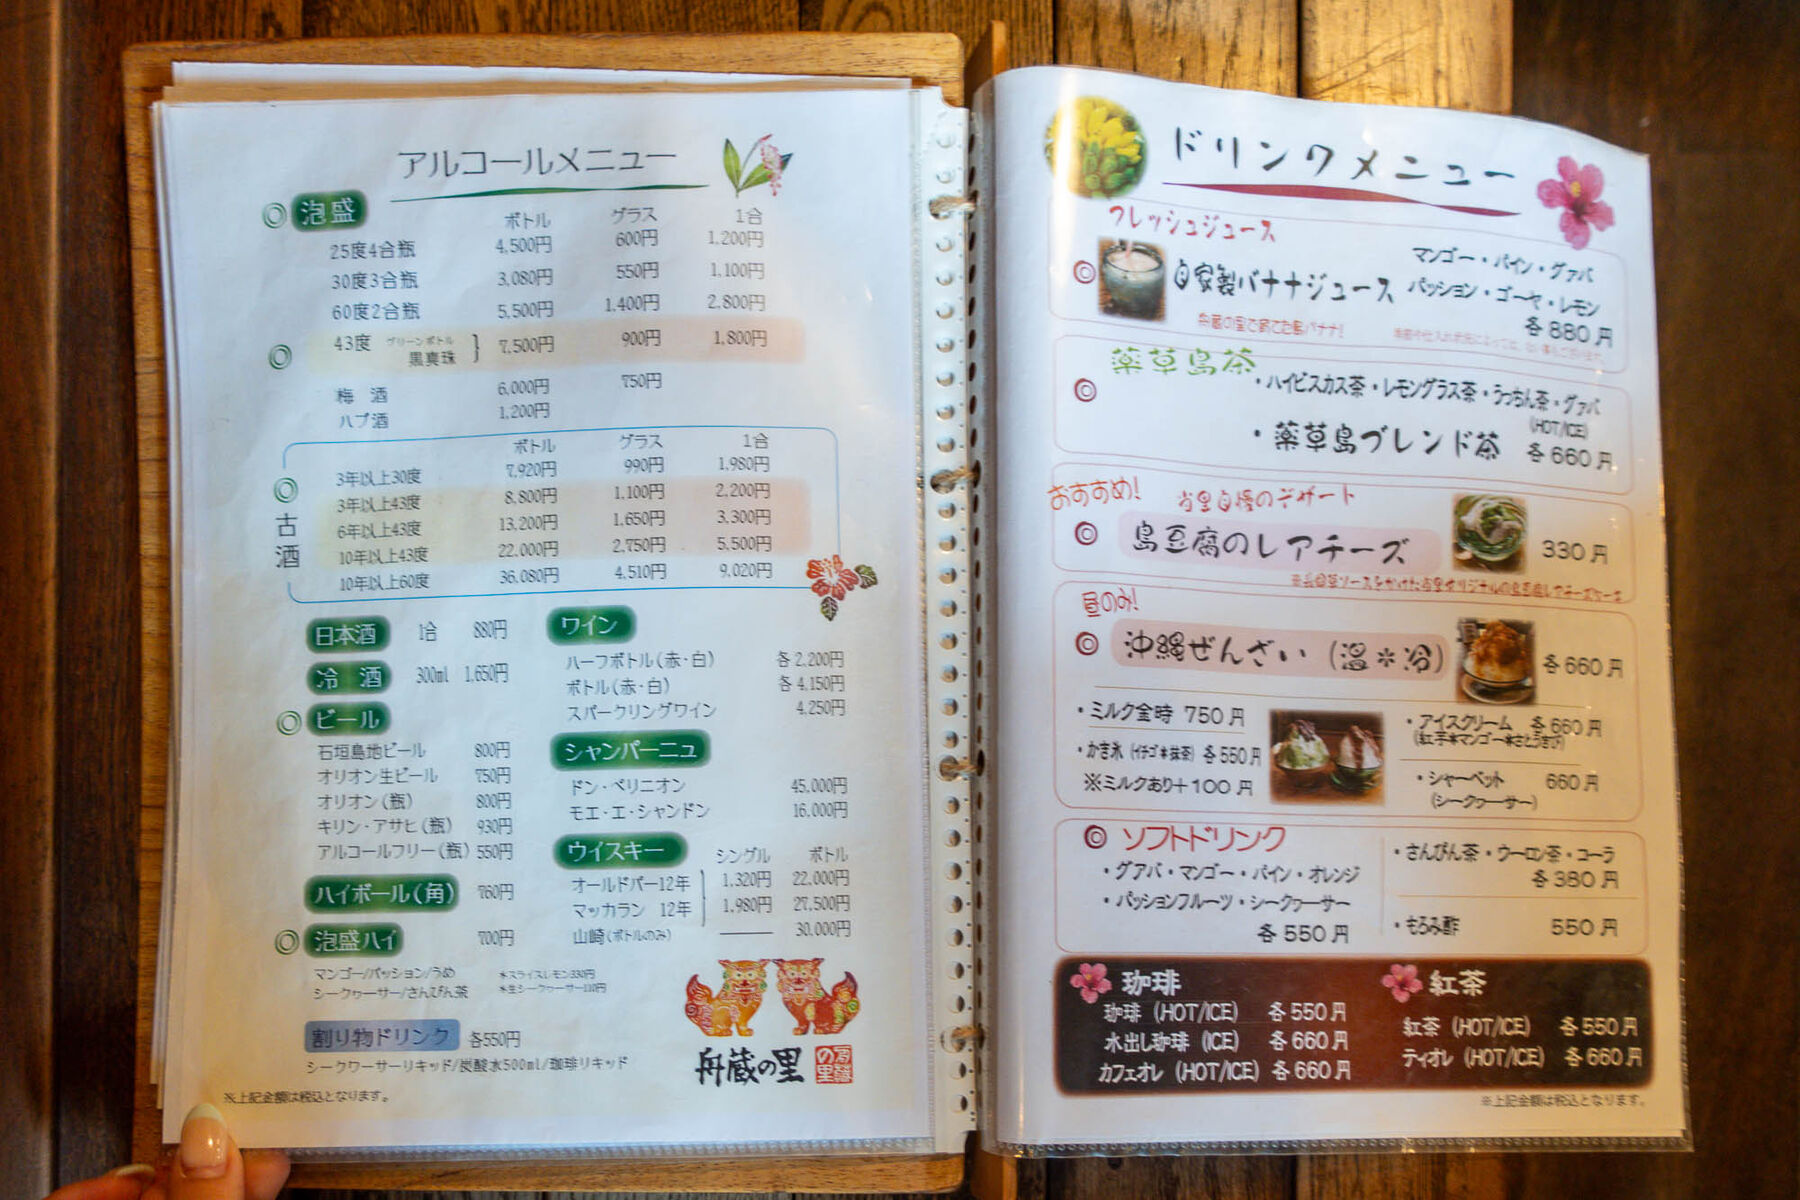 アルコールメニュー
◎ 泡盛
ボトル グラス 1合
25度4合瓶 4,500円 600円 1,200円
30度3合瓶 3,080円 550円 1,100円
60度2合瓶 5,500円 1,400円 2,800円
◎ 43度 グリーンボトル 黒真珠 } 7,500円 900円 1,800円
梅 酒 6,000円 750円
ハブ酒 1,200円
◎ 古酒
ボトル グラス 1合
3年以上30度 7,920円 990円 1,980円
3年以上43度 8,800円 1,100円 2,200円
6年以上43度 13,200円 1,650円 3,300円
10年以上43度 22,000円 2,750円 5,500円
10年以上60度 36,080円 4,510円 9,020円
日本酒 1合 880円
冷 酒 300ml 1,650円
◎ ビール
石垣島地ビール 800円
オリオン生ビール 750円
オリオン(瓶) 800円
キリン・アサヒ(瓶) 930円
アルコールフリー(瓶) 550円
ハイボール(角) 760円
◎ 泡盛ハイ 700円
マンゴー/パッション/うめ
シークヮーサー/さんぴん茶
*スライスレモン330円
*生シークヮーサー110円
割り物ドリンク 各550円
シークワーサーリキッド/炭酸水500ml/珈琲リキッド
※上記金額は税込となります。
ワイン
ハーフボトル(赤・白) 各2,200円
ボトル(赤・白) 各4,150円
スパークリングワイン 4,250円
シャンパーニュ
ドン・ペリニオン 45,000円
モエ・エ・シャンドン 16,000円
ウイスキー シングル ボトル
オールドパー12年 1,320円 22,000円
マッカラン 12年 1,980円 27,500円
山崎(ボトルのみ) ―― 30,000円
舟蔵の里
ドリンクメニュー
フレッシュジュース
◎ 自家製バナナジュース
舟蔵の里で育てた島バナナ!
マンゴー・パイン・グァバ
パッション・ゴーヤ・レモン
各880円
薬草島茶
◎ ・ハイビスカス茶・レモングラス茶・うっちん茶・グァバ
(HOT/ICE)
・薬草島ブレンド茶 各660円
おすすめ! 当里自慢のデザート
◎ 島豆腐のレアチーズ 330円
※長命草ソースをかけた当里オリジナルの島豆腐レアチーズケーキ
昼のみ!
◎ 沖縄ぜんざい (温*冷) 各660円
・ミルク金時 750円
・かき氷 (イチゴ*抹茶) 各550円
※ミルクあり+100円
・アイスクリーム 各660円
(紅芋*マンゴー*さとうきび)
・シャーベット 660円
(シークヮーサー)
◎ ソフトドリンク
・グアバ・マンゴー・パイン・オレンジ
・パッションフルーツ・シークヮーサー
各550円
・さんぴん茶・ウーロン茶・コーラ
各380円
・もろみ酢 550円
珈琲
珈琲 (HOT/ICE) 各550円
水出し珈琲 (ICE) 各660円
カフェオレ (HOT/ICE) 各660円
紅茶
紅茶 (HOT/ICE) 各550円
ティオレ (HOT/ICE) 各660円
※上記金額は税込となります。